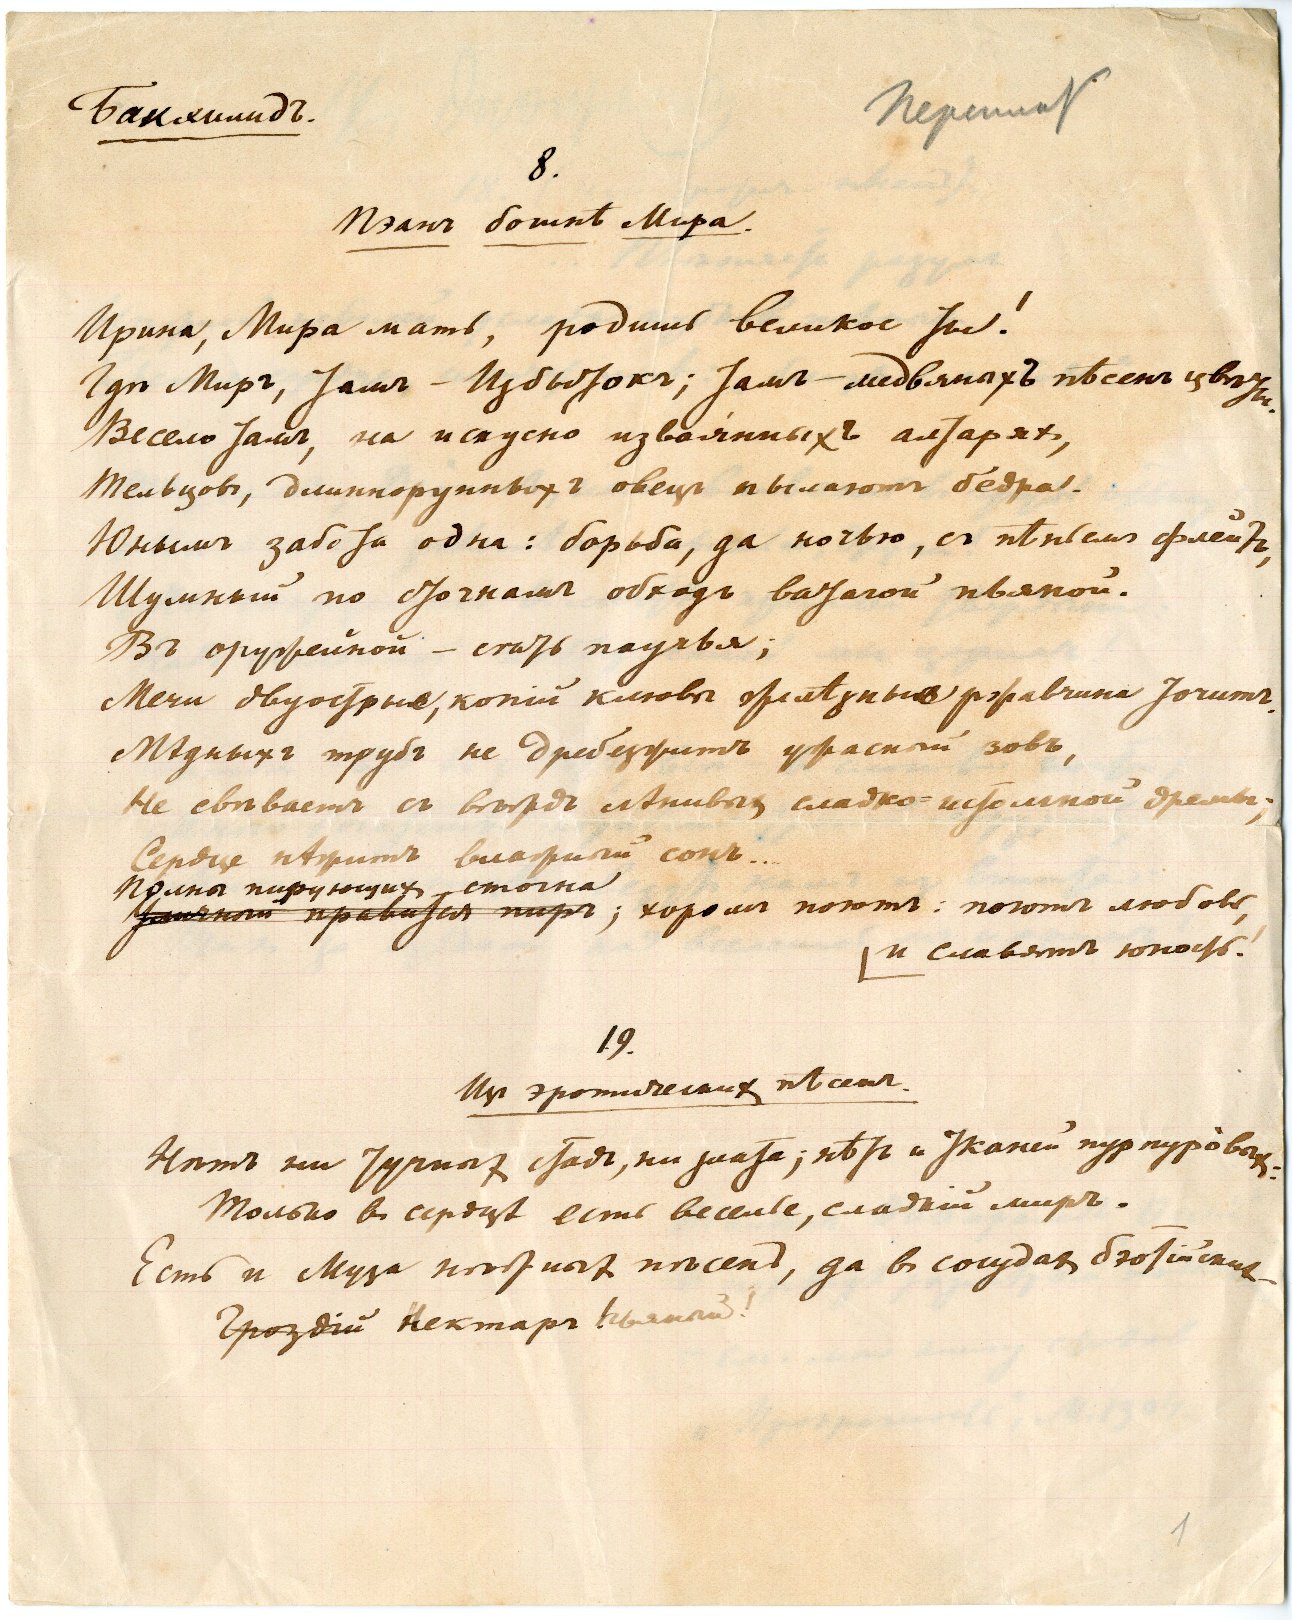 Бакхилидъ.
8.
Пэанъ богинѣ Мира.
Ирина, Мира мать, родишь великое ты!
Гдѣ Миръ, тамъ – Избытокъ; тамъ – медвяныхъ пѣсенъ цвѣты.
Весело тамъ, на искусно изваянныхъ алтаряхъ,
Тельцовъ, длиннорунныхъ овецъ пылаютъ бедра.
Юнымъ забота одна: борьба, да ночью, съ пѣньемъ флейтъ,
Шумный по стогнамъ обходъ ватагой пьяной.
Въ оружейной – снасть паучья;
Мечи двуострые, копій клювы желѣзные ржавчина точитъ.
Мѣдныхъ трубъ не дребезжитъ ужасный зовъ,
Не свѣваетъ съ вѣждъ лѣнивыхъ сладко-истомной дремы;
Сердце нѣжитъ влажный сонъ...
Полны пирующихъ стогна
Уличный правится пиръ; хоромъ поютъ: поютъ любовь,
и славятъ юность!
19.
Изъ эротическихъ пѣсенъ.
Нѣтъ ни тучныхъ стадъ, ни злата; нѣтъ и тканей пурпуровыхъ:
Только въ сердцѣ есть веселье, сладкій миръ.
Есть и Муза нѣжныхъ пѣсенъ, да въ сосудахъ бэотійскихъ –
Гроздій Нектаръ пьяный!
1